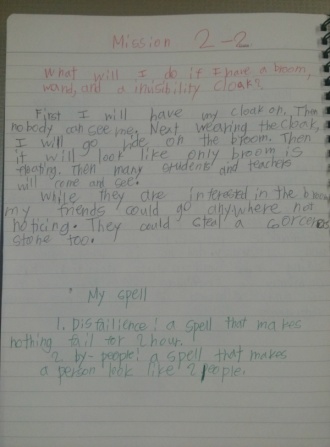 Mission 2-2
What will I do if I have a broom,
wand, and a invisibility cloak?
First I will have my cloak on. Then
nobody can see me. Next wearing the cloak,
I will go ride on the broom. Then
it will look like only broom is
floating. Then many students and teachers
will come and see.
While they are interested in the broom
my friends could go anywhere not
noticing. They could steal a sorcerers
stone too.
My spell
1. Disfailience! a spell that makes
nothing fail for 2hour.
2. by-people! a spell that makes
a person look like 2 people.